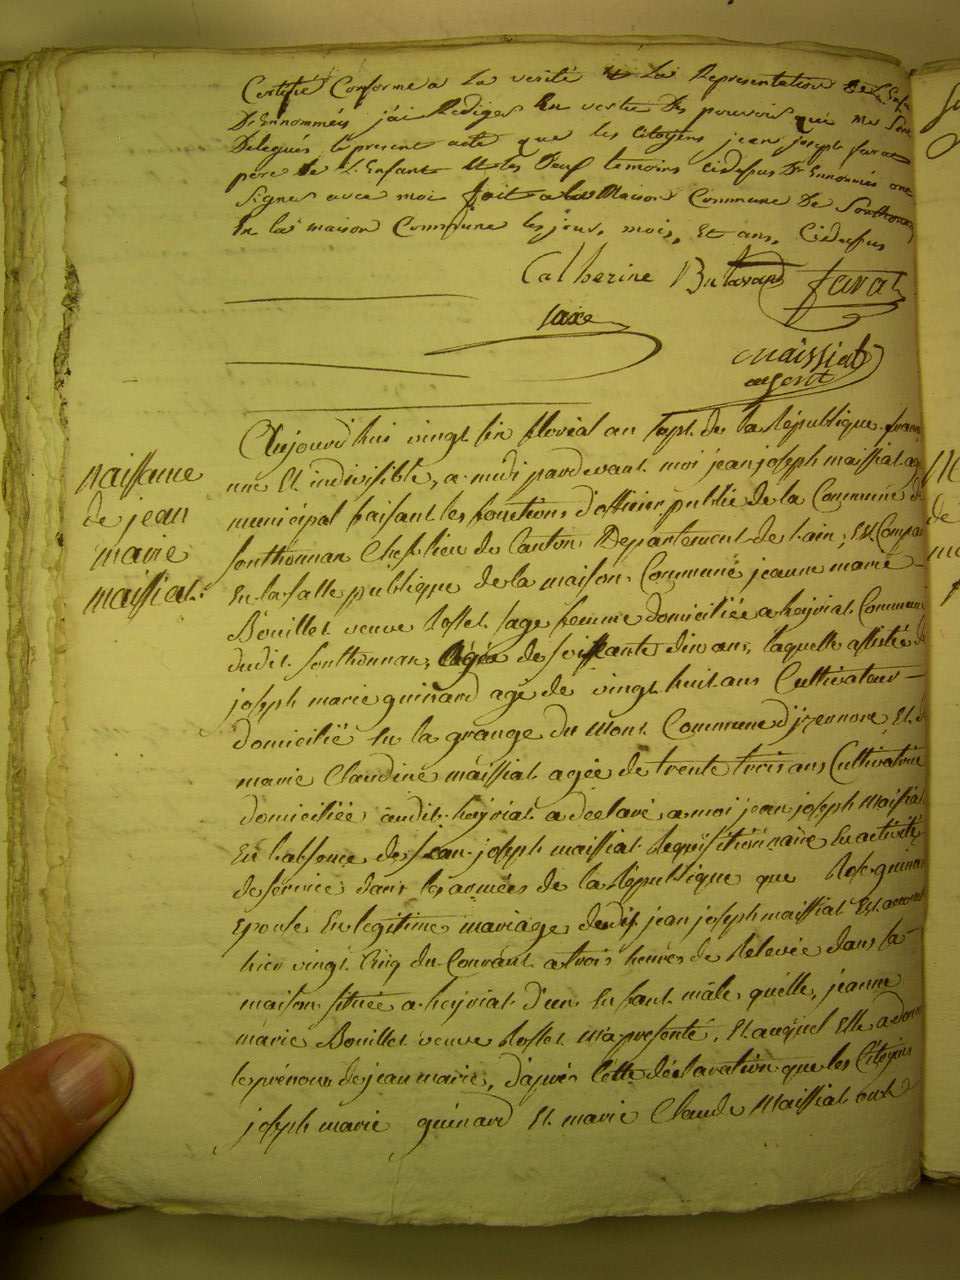 Certifié Conforme a La verité et La Representation de L'Enfa
Dénnommés j'ai Rediges En vertu Des pouvoirs qui me Sont
Delegués le present acte que les Citoyens jean joseph favat
pere de L'Enfant et les Deux temoins cidessus Dénnommés ont
Signes avec moi fait a la Maison Commune De Sonthonnax
En la maison Commune les jour, mois, Et ans, Cidessus
Catherine
favat
maissiat
agent
naissance
de jean
marie
maissiat.
Aujourd'hui vingt six floreal an sept de la République franc
une Et indivisible, a midi pardevant moi jean joseph maissiat age
municipal faisant les fonctions d'officier public de la Commune de
Sonthonnax Chef lieu de Canton Departement de L'ain, Est Compar
En la salle publique de la maison Commune jeanne marie
Bouillet veuve Rosset sage femme domiciliée a heyriat Commune
dudit Sonthonnax, agée de soissante dix ans, laquelle assistée de
joseph marie guinard agé de vingt huit ans Cultivateur
domicilié En la grange du Mont Commune d'izernore, Et de
marie Claudine maissiat agée de trente trois ans Cultivatrice
domiciliée audit heyriat a declaré a moi jean joseph Maissiat
En L'absence de jean joseph maissiat Requisitionnaire En activité
de service dans les armées de la République que Rose guinar
Epouse En legitime mariage dudit jean joseph maissiat Est accouch
hier vingt Cinq du Courant a trois heures de Relevée dans la
maison située a heyriat d'un Enfant mâle quelle, jeanne
marie Bouillet veuve Rosset m'a presenté, Et auquel Elle a donn
le prénom de jean marie, d'après Cette déclaration que les Citoyens
joseph marie guinard Et marie Claude Maissiat ont